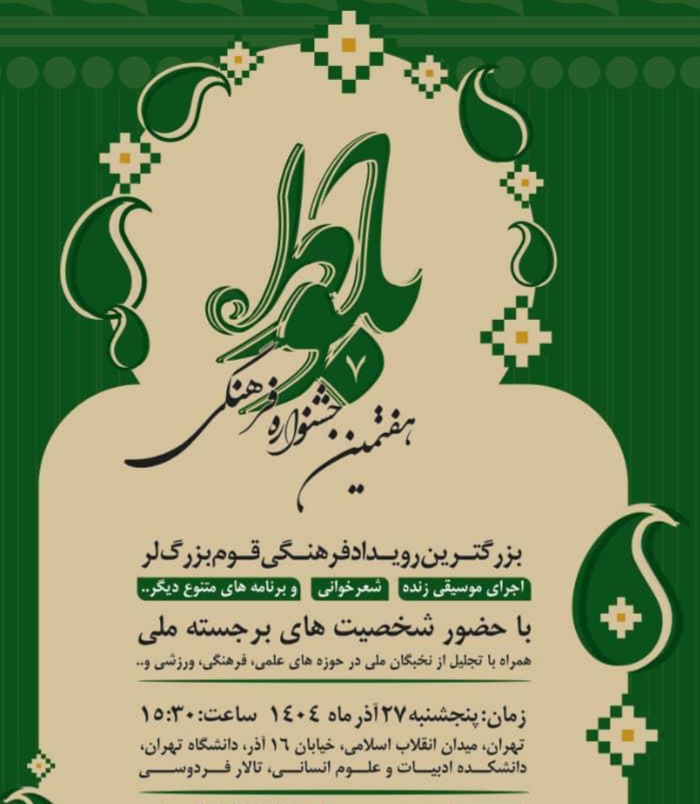 ۷
هفتمین جشنواره فرهنگی
بزرگترین رویداد فرهنگی قوم بزرگ لر
اجرای موسیقی زنده شعرخوانی و برنامه های متنوع دیگر..
با حضور شخصیت های برجسته ملی
همراه با تجلیل از نخبگان ملی در حوزه های علمی، فرهنگی، ورزشی و..
زمان: پنجشنبه ۲۷ آذر ماه ۱۴۰۴ ساعت: ۱۵:۳۰
تهران، میدان انقلاب اسلامی، خیابان ۱۶ آذر، دانشگاه تهران،
دانشکده ادبیات و علوم انسانی، تالار فردوسی